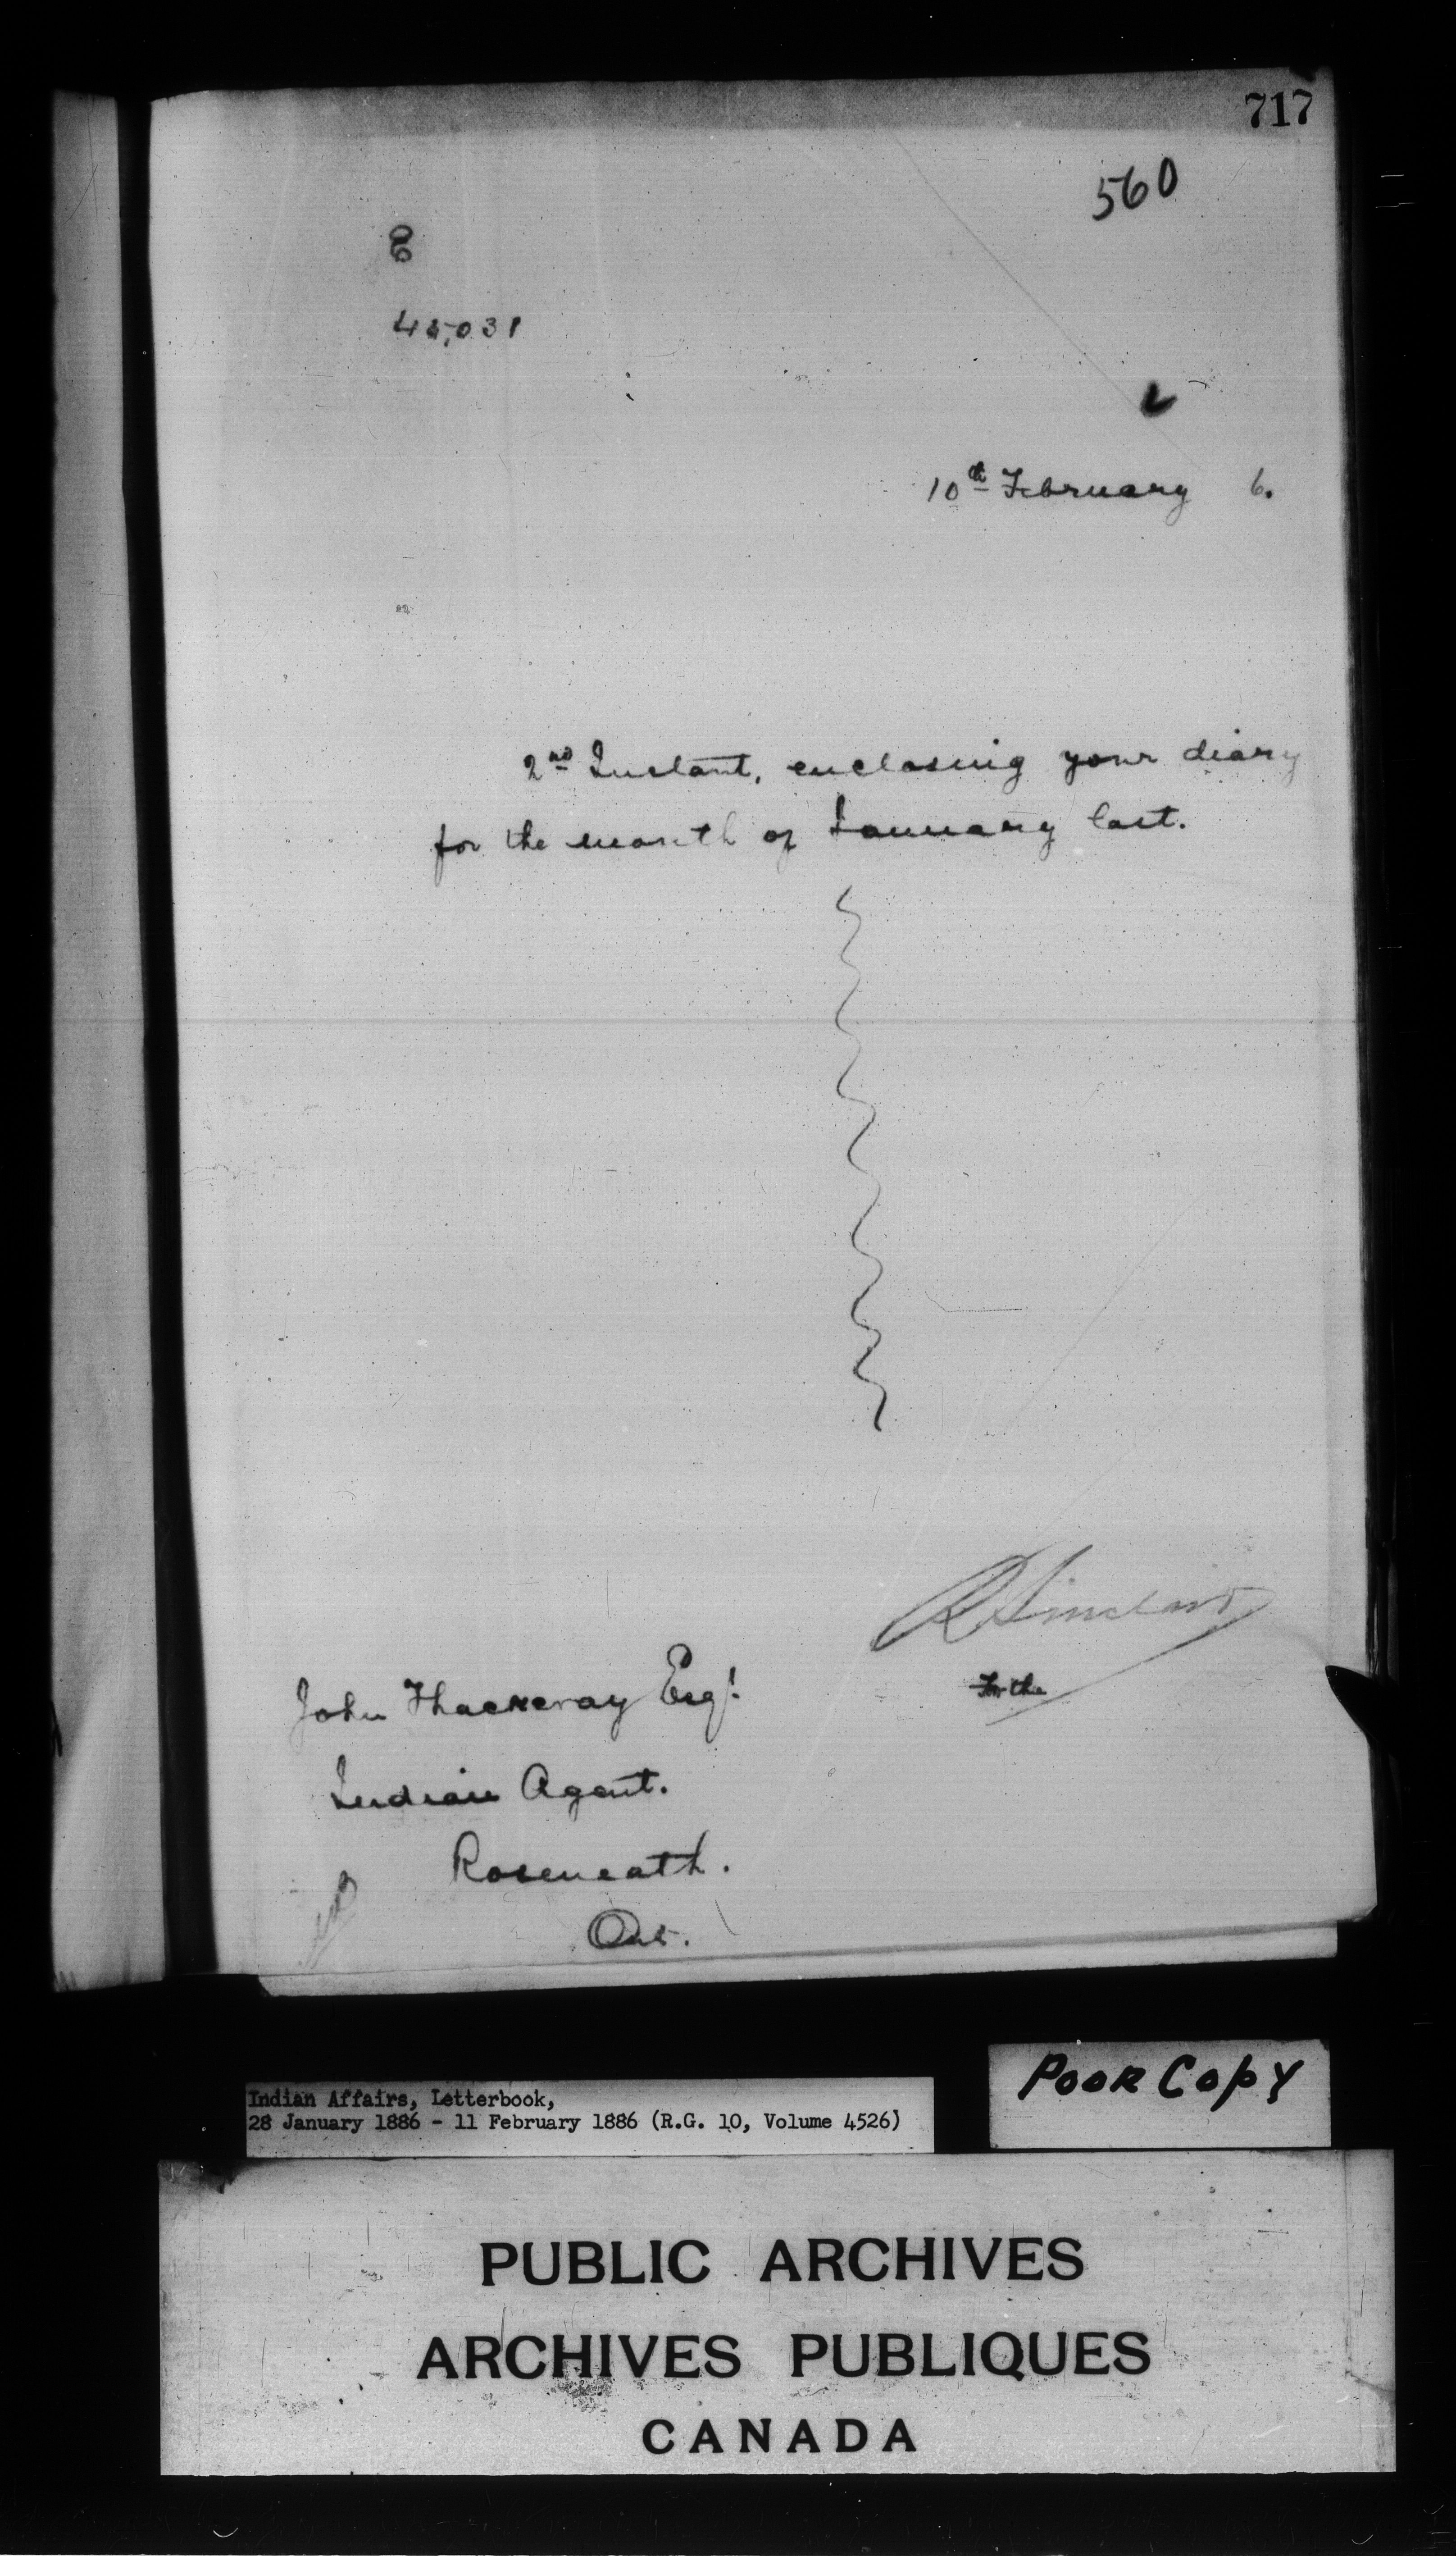 717
560
10th February 6.
2nd Instant, enclosing your diary
for the month of January last.
R Sinclair
For the
John Thackeray Esqr.
Indian Agent.
Roseneath.
Ont.
Poor Copy
Indian Affairs, Letterbook,
28 January 1886 - 11 February 1886 (R.G. 10, Volume 4526)
PUBLIC ARCHIVES
ARCHIVES PUBLIQUES
CANADA